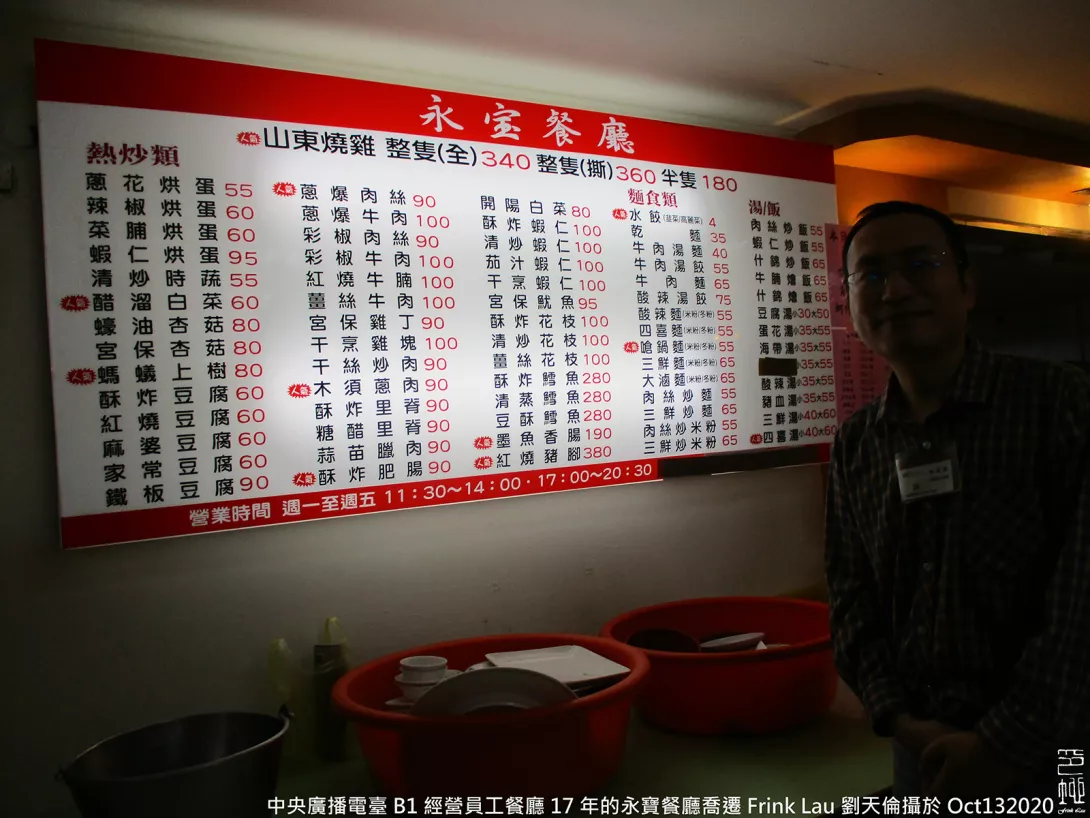 永宝餐廳
人氣 山東燒雞 整隻(全)340 整隻(撕)360 半隻180
熱炒類
蔥花烘蛋 55
辣椒烘蛋 60
菜脯烘蛋 60
蝦仁烘蛋 95
清炒時蔬 55
人氣 醋溜白菜 60
蠔油杏菇 80
宮保杏菇 80
人氣 螞蟻上樹 80
酥炸豆腐 60
紅燒豆腐 60
麻婆豆腐 60
家常豆腐 60
鐵板豆腐 90
人氣 蔥爆肉絲 90
蔥爆牛肉 100
彩椒肉絲 90
彩椒牛肉 100
紅燒牛腩 100
薑絲牛肉 100
宮保雞丁 90
干烹雞塊 100
干絲炒肉 90
人氣 木須蔥肉 90
酥炸里脊 90
糖醋里脊 90
蒜苗臘肉 90
人氣 酥炸肥腸 90
開陽白菜 80
酥炸蝦仁 100
清炒蝦仁 100
茄汁蝦仁 100
干烹蝦仁 100
宮保魷魚 95
酥炸花枝 100
清炒花枝 100
薑絲花枝 100
酥炸鱈魚 280
清蒸鱈魚 280
豆酥鱈魚 280
人氣 墨魚香腸 190
人氣 紅燒豬腳 380
麵食類
人氣 水餃(韭菜/高麗菜) 4
乾麵 35
牛肉湯麵 40
牛肉湯餃 55
牛肉麵 65
酸辣湯餃 75
酸辣麵(米粉/冬粉) 55
四喜麵(米粉/冬粉) 55
人氣 嗆鍋麵(米粉/冬粉) 55
三鮮麵(米粉/冬粉) 65
大滷麵(米粉/冬粉) 65
肉絲炒麵 55
三鮮炒麵 65
肉絲炒米粉 55
三鮮炒米粉 65
湯/飯
肉絲炒飯 55
蝦仁炒飯 65
什錦炒飯 65
牛腩燴飯 65
什錦燴飯 65
豆腐湯 小30大50
蛋花湯 小35大55
海帶湯 小35大55
酸辣湯 小35大55
豬血湯 小35大55
三鮮湯 小40大60
人氣 四喜湯 小40大60
營業時間 週一至週五 11:30～14:00 · 17:00～20:30
中央廣播電臺 B1 經營員工餐廳 17 年的永寶餐廳喬遷 Frink Lau 劉天倫攝於 Oct132020